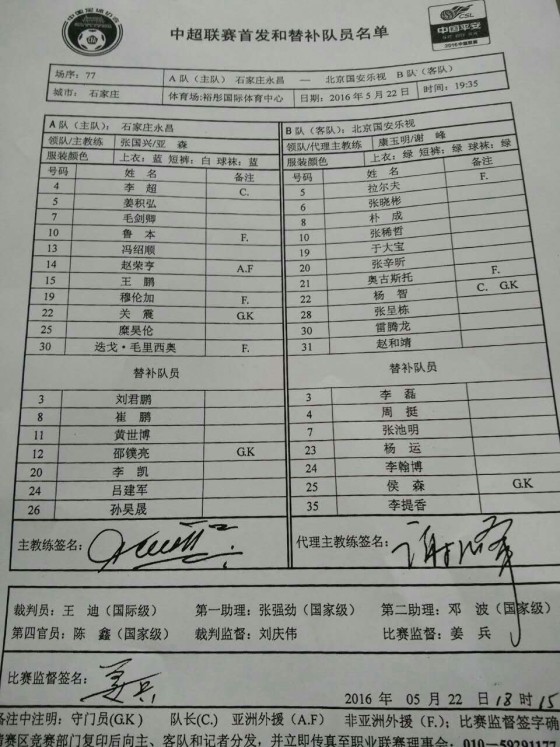 中超联赛首发和替补队员名单
CSL
中国平安
场序：77 A队（主队） 石家庄永昌 — 北京国安乐视 B队（客队）
城市： 石家庄 体育场：裕彤国际体育中心 日期：2016年5月22日 时间：19:35
A队（主队）： 石家庄永昌
领队/主教练 张国兴/亚 森
服装颜色 上衣：蓝 短裤：白 球袜：蓝
号码 姓 名 备注
4 李 超 C.
5 姜积弘
7 毛剑卿
10 鲁 本 F.
13 冯绍顺
14 赵荣亨 A.F
15 王 鹏
19 穆伦加 F.
22 关 震 G.K
25 糜昊伦
30 迭戈·毛里西奥 F.
替补队员
3 刘君鹏
8 崔 鹏
11 黄世博
12 邵镤亮 G.K
20 李 凯
24 吕建军
26 孙吴晟
主教练签名：
B队（客队）：北京国安乐视
领队/代理主教练 康玉明/谢 峰
服装颜色 上衣：绿 短裤：绿 球袜：绿
号码 姓 名 备注
5 拉尔夫 F.
6 张晓彬
8 朴 成
10 张稀哲
19 于大宝
20 张辛昕
21 奥古斯托 F.
22 杨 智 C. G.K
28 张呈栋
30 雷腾龙
31 赵和靖
替补队员
3 李 磊
4 周 挺
7 张池明
23 杨 运
24 李翰博
25 侯 森 G.K
35 李提香
代理主教练签名：
裁判员：王 迪（国际级） 第一助理：张强劲（国家级） 第二助理：邓 波（国家级）
第四官员：陈 鑫（国家级） 裁判监督：刘庆伟 比赛监督：姜 兵
比赛监督签名： 姜兵
2016 年 05 月 22 日 18 时 15
备注中注明：守门员(G.K) 队长(C.) 亚洲外援（A.F） 非亚洲外援（F.）；比赛监督签字确
赛区竞赛部门复印后向主、客队和记者分发，并立即传真至职业联赛理事会：010—5929117